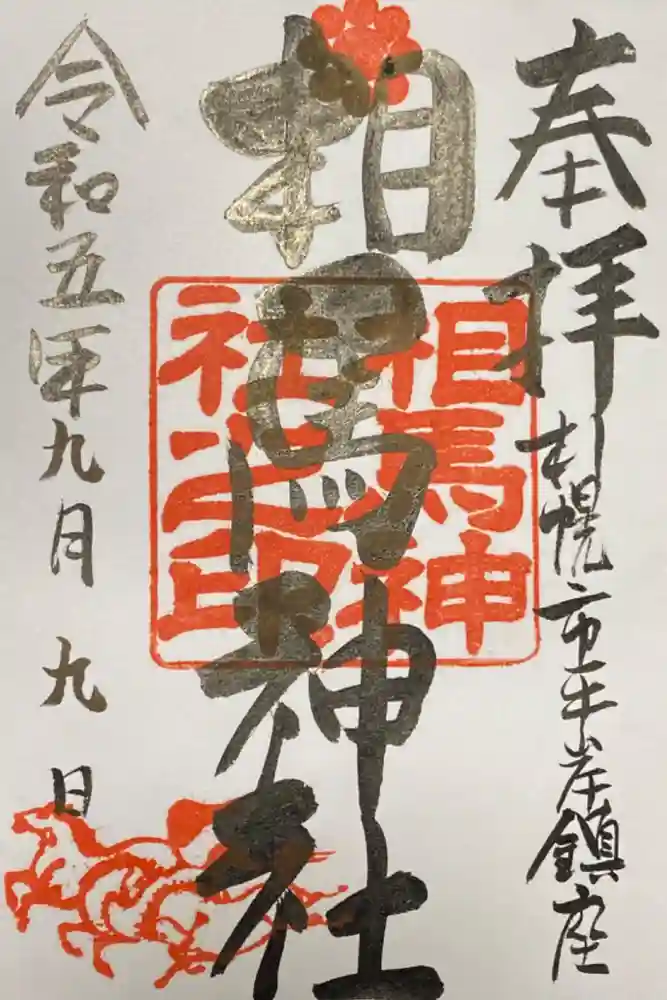 奉拝
札幌市平岸鎮座
相馬神社
相馬神
社之印
令和五年九月九日